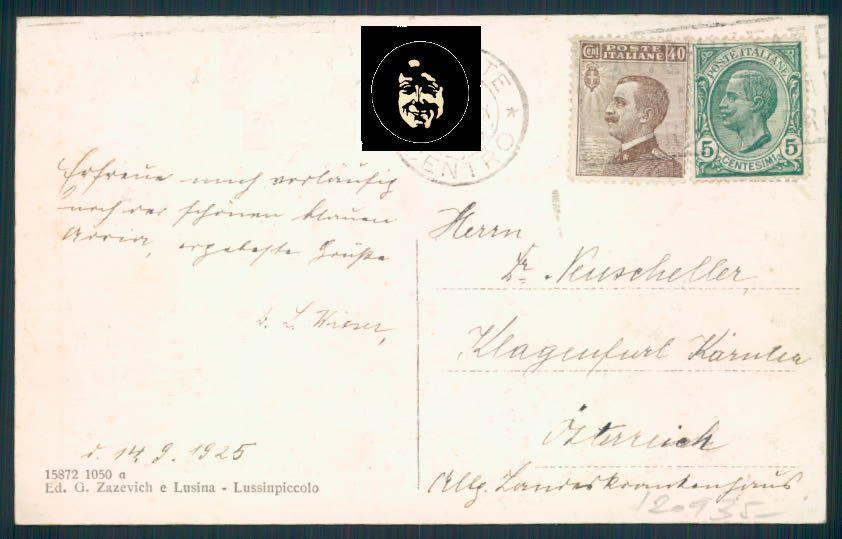 Cent POSTE ITALIANE 40
POSTE ITALIANE
5 CENTESIMI 5
CENTRO *
Erfreue mich vorläufig
noch der schönen blauen
Adria, ergebenste Grüße
L. Wieser,
d. 14. 9. 1925
15872 1050 a
Ed. G. Zazevich e Lusina - Lussinpiccolo
Herrn
Dr. Neuscheller,
Klagenfurt Kärnten
Österreich
Allg. Landeskrankenhaus